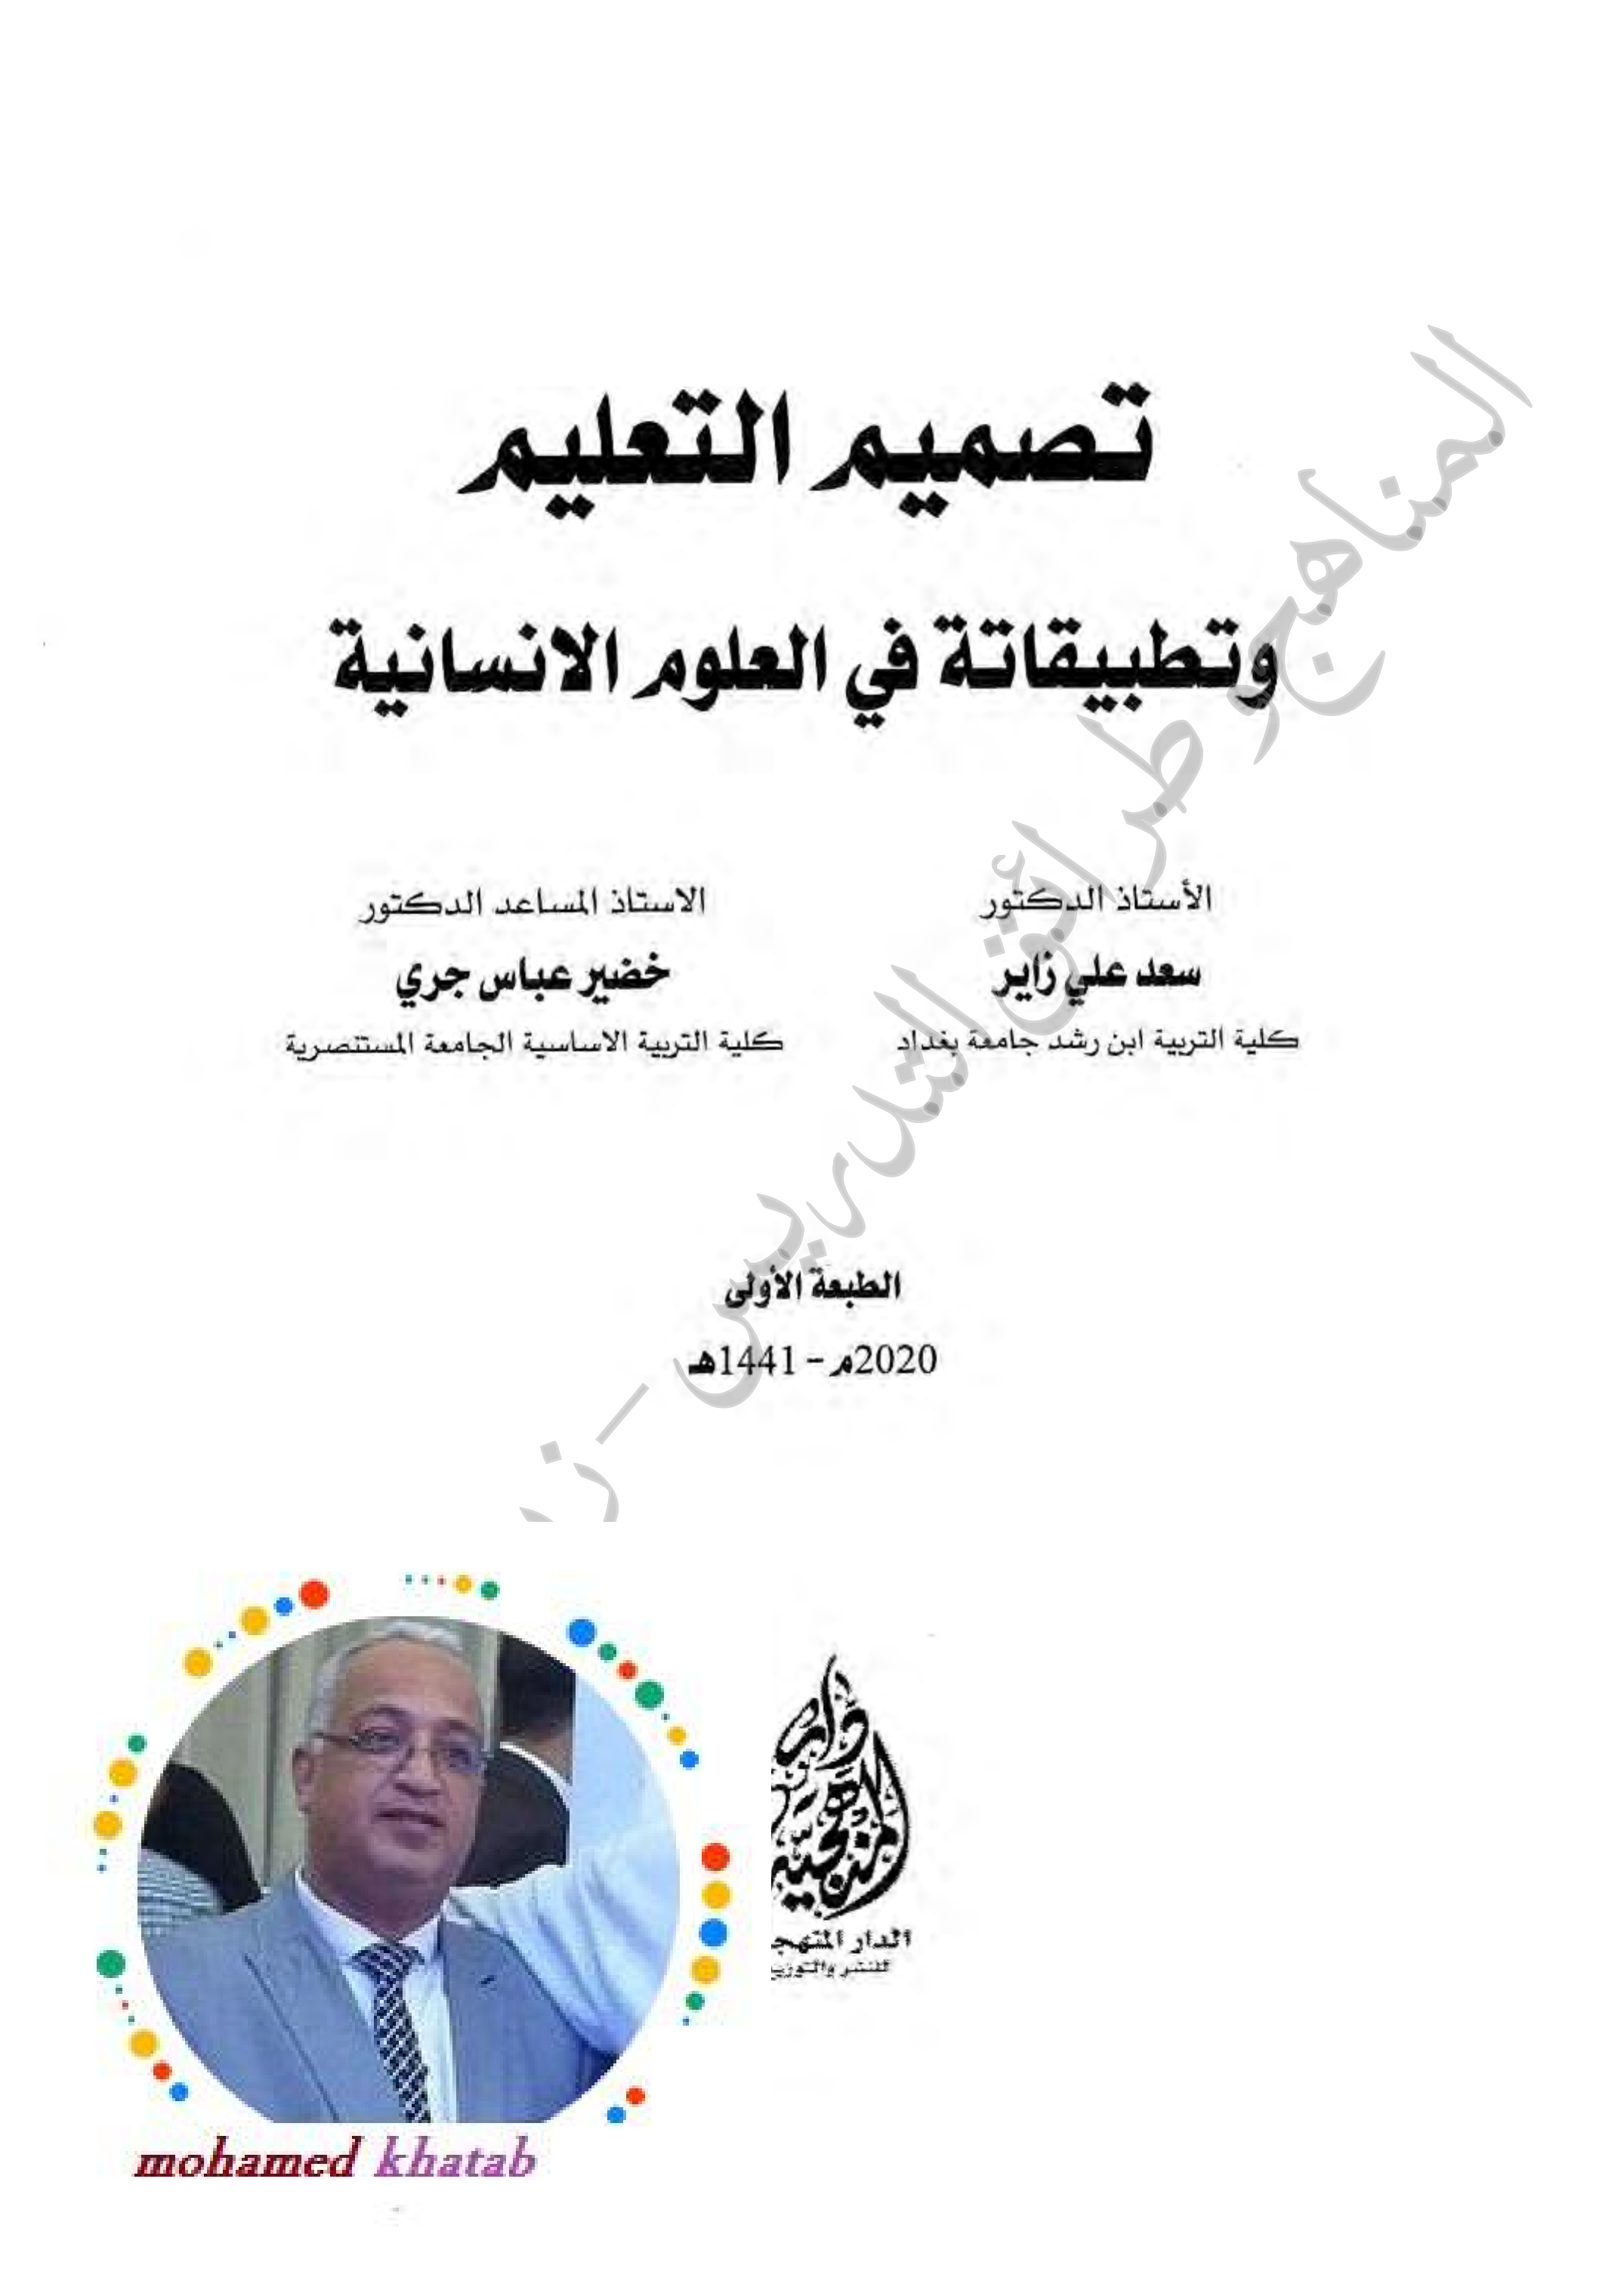 تصميم التعليم
وتطبيقاتة في العلوم الانسانية
الأستاذ الدكتور
سعد علي زاير
كلية التربية ابن رشد جامعة بغداد
الاستاذ المساعد الدكتور
خضير عباس جري
كلية التربية الاساسية الجامعة المستنصرية
الطبعة الأولى
2020م - 1441هـ
المناهج وطرائق التدريس -
دار
المنهجية
الدار المنهجي
للنشر والتوزي
mohamed khatab